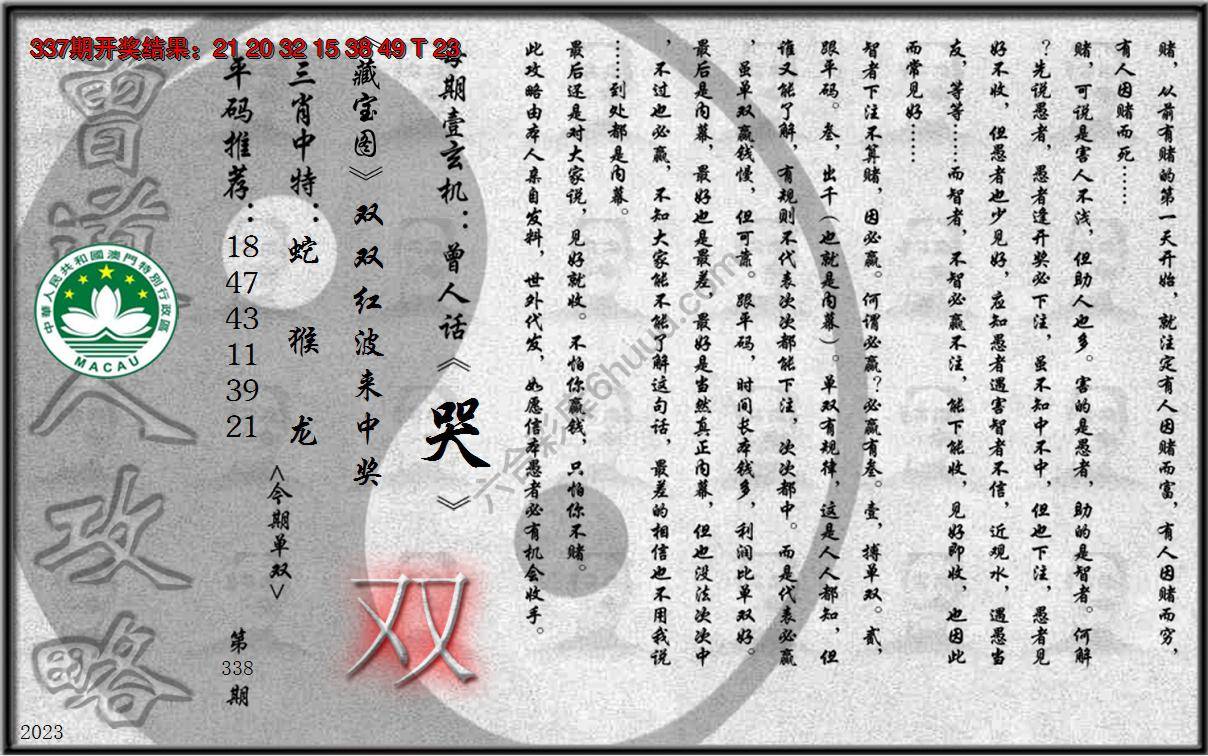 337期开奖结果：21 20 32 15 38 49 T 23
赌，从前有赌的第一天开始，就注定有人因赌而富，有人因赌而穷，
有人因赌而死……
赌，可说是害人不浅，但助人也多。害的是愚者，助的是智者。何解
？先说愚者，愚者逢开奖必下注，虽不知中不中，但也下注，愚者见
好不收，但愚者也少见好，应知愚者遇害智者不信，近观水，遇愚当
友，等等……而智者，不智必赢不注，能下能收，见好即收，也因此
而常见好……
智者下注不算赌，因必赢。何谓必赢？必赢有叁。壹，搏单双。贰，
跟平码。叁，出千（也就是内幕）。单双有规律，这是人人都知，但
谁又能了解，有规则不代表次次都能下注，次次都中。而是代表必赢
，虽单双赢钱慢，但可靠。跟平码，时间长本钱多，利润比单双好。
最后是内幕，最好也是最差，最好是当然真正内幕，但也没法次次中
，不过也必赢，不知大家能不能了解这句话，最差的相信也不用我说
……到处都是内幕。
最后还是对大家说，见好就收。不怕你赢钱，只怕你不赌。
此攻略由本人亲自发料，世外代发，如愿信本愚者必有机会收手。
每期壹玄机：曾人话《哭》
《藏宝图》双双红波来中奖
双
三肖中特：蛇 猴 龙
<今期单双>
平码推荐：18 47 43 11 39 21
第338期
曾道人攻略
中華人民共和國澳門特別行政區
MACAU
2023